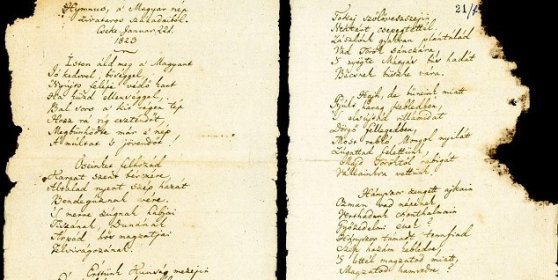 Hymnus, a' Magyar nép
zivataros századaiból.
Cseke Januar. 22d.
1823
Isten áldd meg a' Magyart
Jó kedvvel, bőséggel,
Nyújts feléje védő kart
Ha küzd ellenséggel;
Bal sors a' kit régen tép
Hozz rá víg esztendőt,
Megbűnhődte már e' nép
A' multat 's jövendőt!
Őseinket felhozád
Kárpát szent bérczére,
Általad nyert szép hazát
Bendegúznak vére.
'S merre zúgnak habjai
Tiszának, Dunának,
Árpád hős magzatjai
Felvirágozának.
Értünk Kunság mezején
21/
Tokaj szőlővesszein
Nektárt csepegtettél.
Zászlónk gyakran plántálád
Vad Török sánczára,
'S nyögte Mátyás bús hadát
Bécsnek büszke vára.
Hajh, de bűneink miatt
Gyúlt harag kebledben,
'S elsújtád villámidat
Dörgő fellegedben,
Most rabló Mongol nyilát
Zúgattad felettünk,
Majd Töröktől rabigát
Vállainkra vettünk.
Hányszor zengett ajkain
Ozman vad népének
Vert hadunk csonthalmain
Győzedelmi ének!
Hányszor támadt tenfiad
Szép hazám kebledre,
'S lettél magzatod miatt
Magzatod hamvvedre.